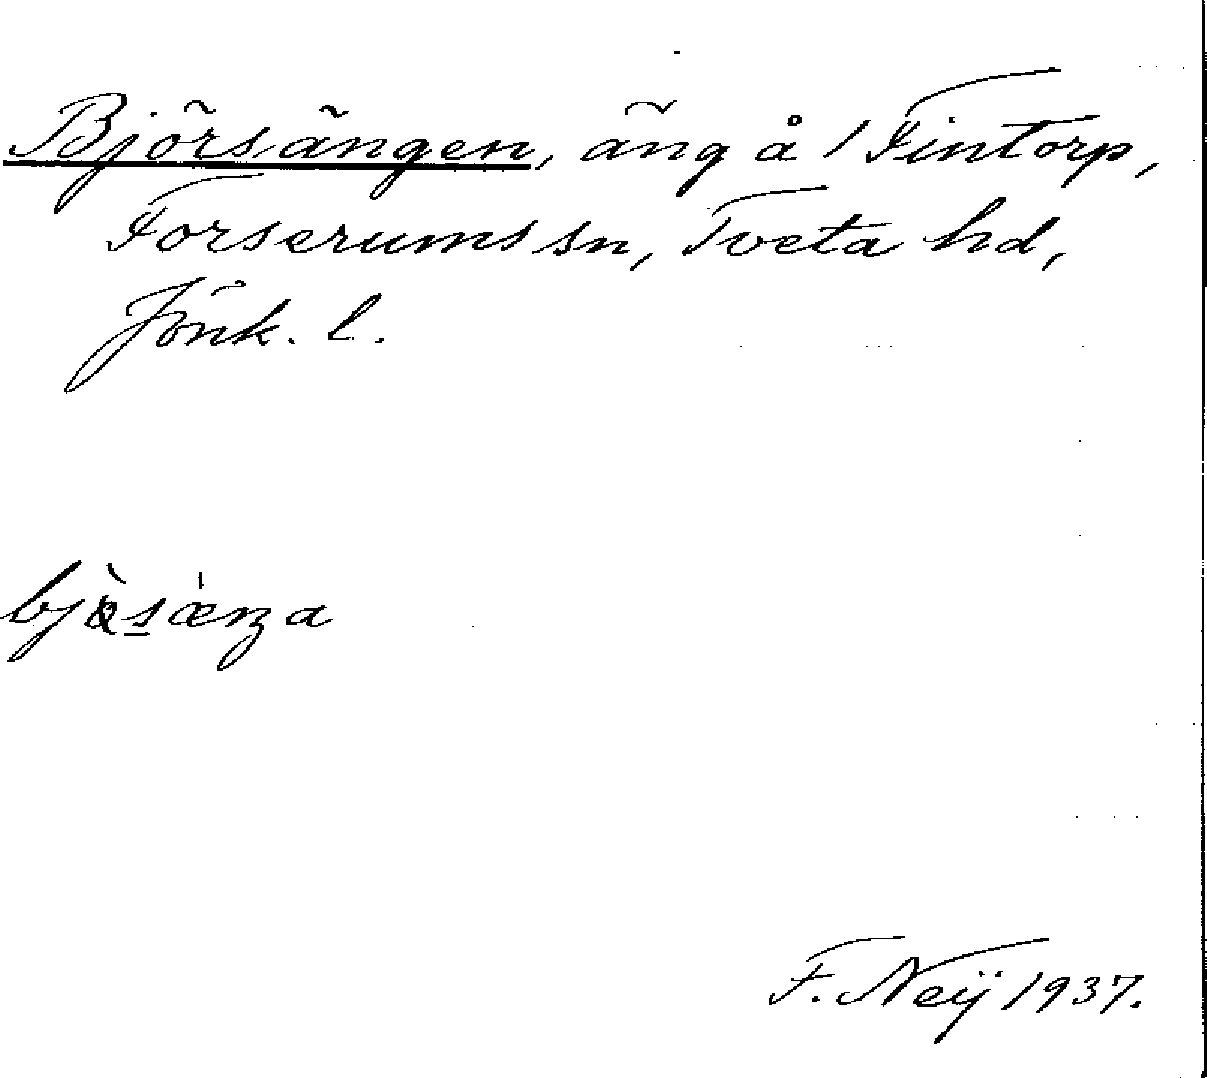 Björsängen, äng å / Fintorp,
Forserums sn, Tveta hd,
Jönk. l.
F. Neij 1937.